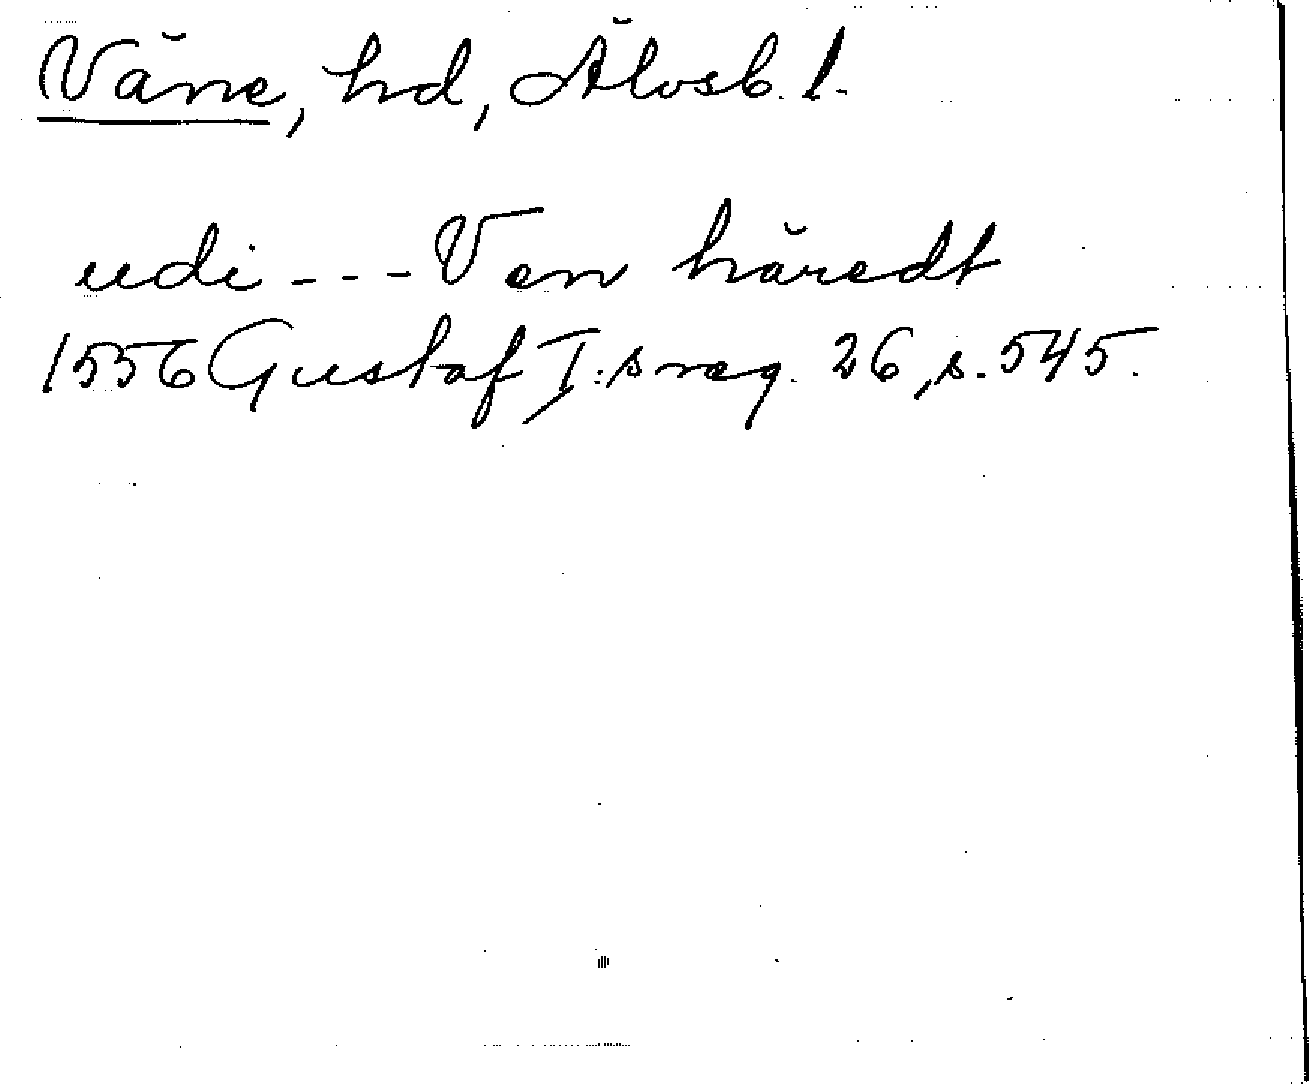 Väne, hd, Älvsb. l.
udi --- Ven häredt
1556 Gustaf I:s reg. 26, s. 545.